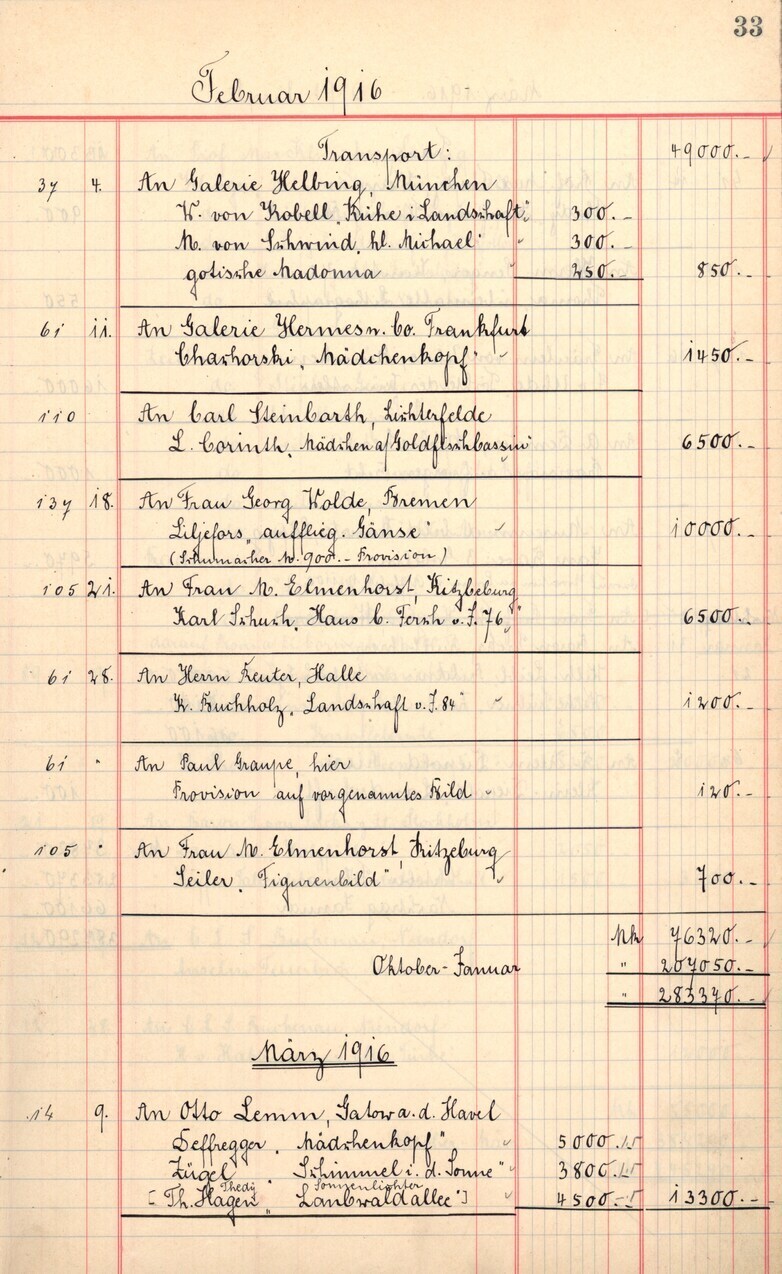 33
Februar 1916
Transport: 49000.-
37 4. An Galerie Helbing, München
W. von Kobell „Kühe i Landschaft" 300.-
M. von Schwind „hl. Michael" 300.-
gotische Madonna 250.- 850.-
61 11. An Galerie Hermes u. Co. Frankfurt
Charhorski „Mädchenkopf" 1450.-
110 An Carl Steinbarth, Lichterfelde
L. Corinth, „Mädchen a/Goldfischbassin" 6500.-
137 18. An Frau Georg Wolde, Bremen
Liljefors „aufflieg. Gänse" 10000.-
(Schumacher M. 900.- Provision)
105 21. An Frau M. Elmenhorst, Kitzbeburg
Karl Schuch „Haus b. Ferch v. J. 76" 6500.-
61 28. An Herrn Reuter, Halle
K. Buchholz „Landschaft v. J. 84" 1200.-
61 " An Paul Graupe, hier
Provision auf vorgenanntes Bild 120.-
105 " An Frau M. Elmenhorst, Kitzeburg
Seiler „Figurenbild" 700.-
Mk 76320.-
Oktober-Januar " 207050.-
" 283370.-
März 1916
14 9. An Otto Lemm, Gatow a. d. Havel
Deffregger „Mädchenkopf" 5000.-
Zügel „Schimmel i. d. Sonne" 3800.-
Thedy Sonnenlichter
[Th. Hagen „Laubwaldallee"] 4500.- 13300.-